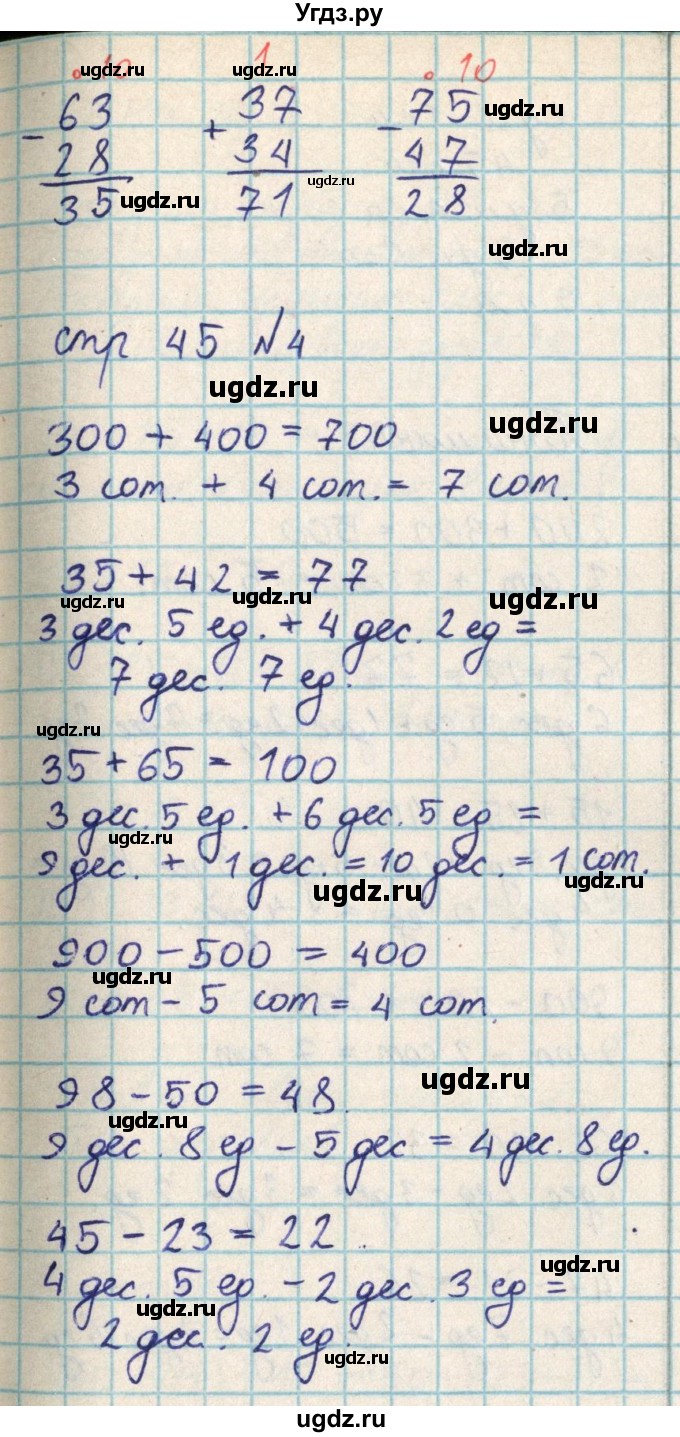 Угдз.ру
. 10 ugdz.ru 1 ugdz.ru . 10
- 63 + 37 - 75 ugdz.ru
28 34 47
35 ugdz.ru 71 ugdz.ru 28
ugdz.ru
стр 45 №4
ugdz.ru
300 + 400 = 700 ugdz.ru
3 сот. + 4 сот. = 7 сот.
35 + 42 = 77
ugdz.ru ugdz.ru ugdz.ru
3 дес. 5 ед. + 4 дес. 2 ед =
7 дес. 7 ед.
ugdz.ru
35 + 65 = 100
3 дес. 5 ед. + 6 дес. 5 ед =
ugdz.ru
9 дес. + 1 дес. = 10 дес. = 1 сот.
ugdz.ru ugdz.ru
900 - 500 = 400
ugdz.ru
9 сот - 5 сот = 4 сот.
ugdz.ru
98 - 50 = 48.
ugdz.ru
9 дес. 8 ед - 5 дес = 4 дес. 8 ед.
45 - 23 = 22.
ugdz.ru
4 дес. 5 ед. - 2 дес. 3 ед =
ugdz.ru
2 дес. 2 ед.
ugdz.ru
ugdz.ru